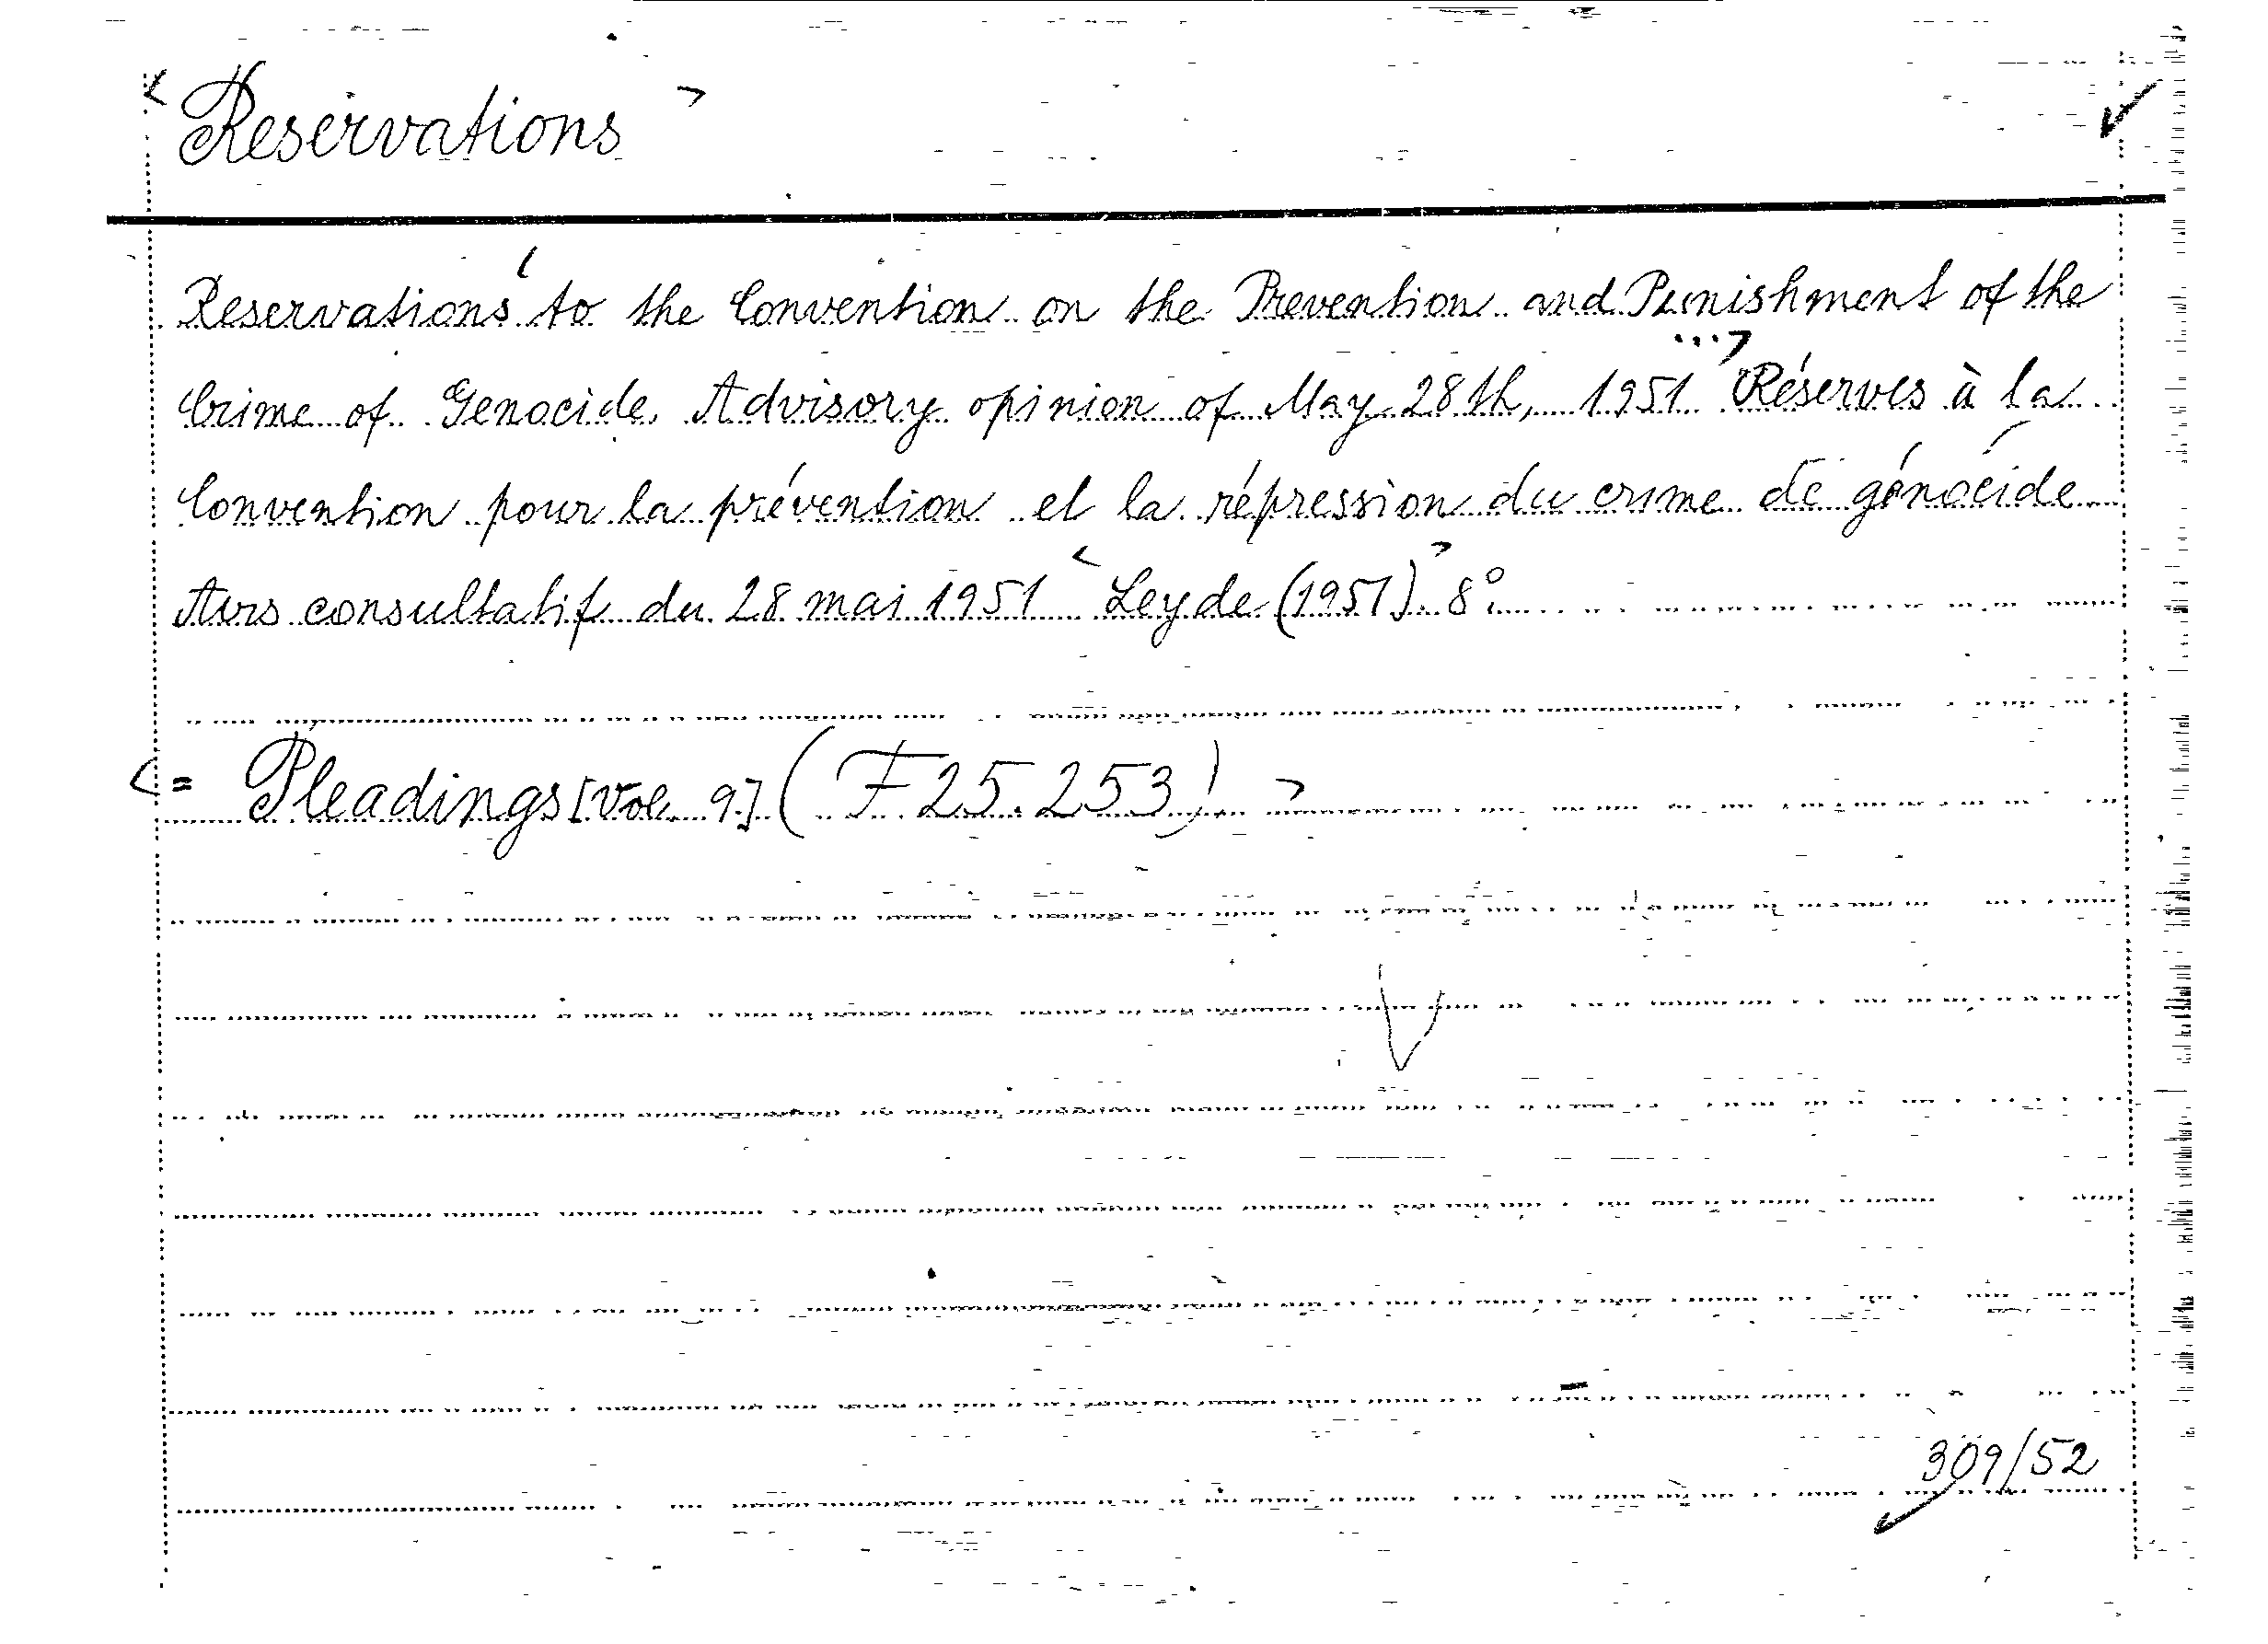 Reservations
Reservations to the Convention on the Prevention and Punishment of the
Crime of Genocide. Advisory opinion of May 28th, 1951 ... Réserves à la
Convention pour la prévention et la répression du crime de génocide
Avis consultatif du 28 mai 1951 Leyde (1951) 8°.
= Pleadings [Vol. 9] (F 25.253)
309/52